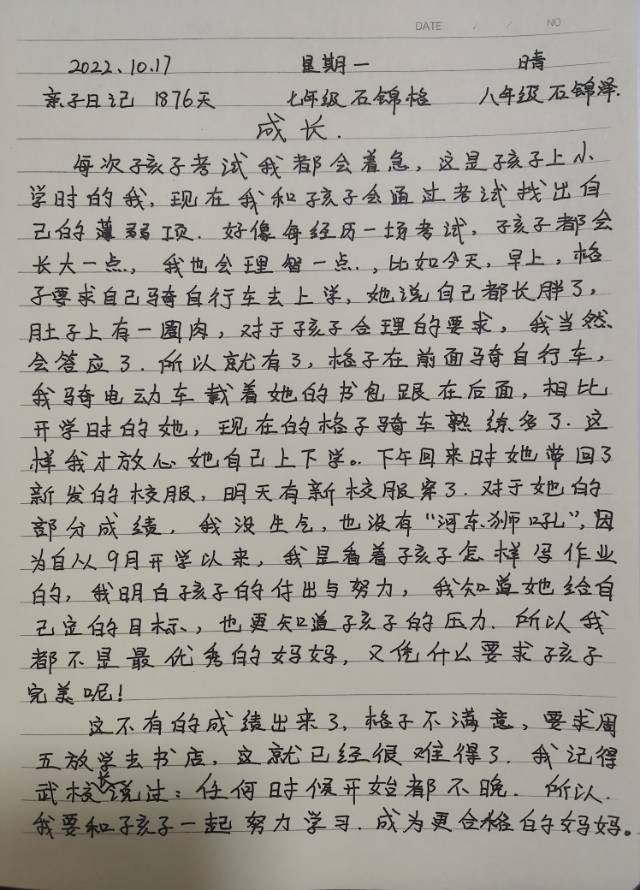 DATE / / NO
2022.10.17 星期一 晴
亲子日记 1876天 七年级 石锦格 八年级 石锦泽.
成长.
每次孩子考试我都会着急,这是孩子上小
学时的我,现在我和孩子会通过考试找出自
己的薄弱项.好像每经历一场考试,孩子都会
长大一点,我也会理智一点.,比如今天,早上,格
子要求自己骑自行车去上学,她说自己都长胖了,
肚子上有一圈肉,对于孩子合理的要求,我当然
会答应了.所以就有了,格子在前面骑自行车,
我骑电动车载着她的书包跟在后面,相比
开学时的她,现在的格子骑车熟练多了.这
样我才放心她自己上下学。.下午回来时她带回了
新发的校服,明天有新校服穿了.对于她的
部分成绩,我没生气,也没有“河东狮吼”,因
为自从9月开学以来,我是看着孩子怎样写作业
的,我明白孩子的付出与努力,我知道她给自
己定的目标、,也更知道孩子的压力.所以我
都不是最优秀的妈妈,又凭什么要求孩子
完美呢!
这不有的成绩出来了,格子不满意,要求周
五放学去书店,这就已经很难得了.我记得
武校长说过:任何时候开始都不晚.所以.
我要和孩子一起努力学习.成为更合格的妈妈。